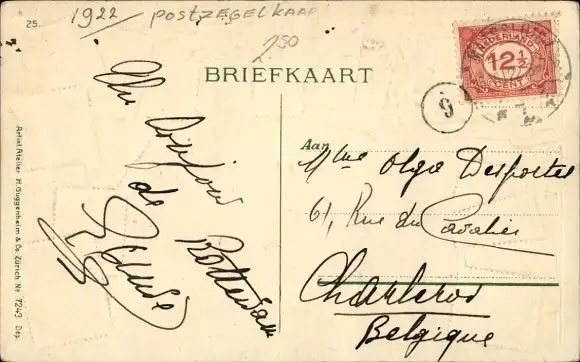 25.
1922 POSTZEGELKAAR
250
BRIEFKAART
NEDERLAND
12½
CENT
9
Un bonjour
de Rotterdam
Aan Mlle Olga Desportes
61, Rue du Cavalier
Charleroi
Belgique
Artist Atelier H. Guggenheim & Co. Zürich No 7243 Dép.